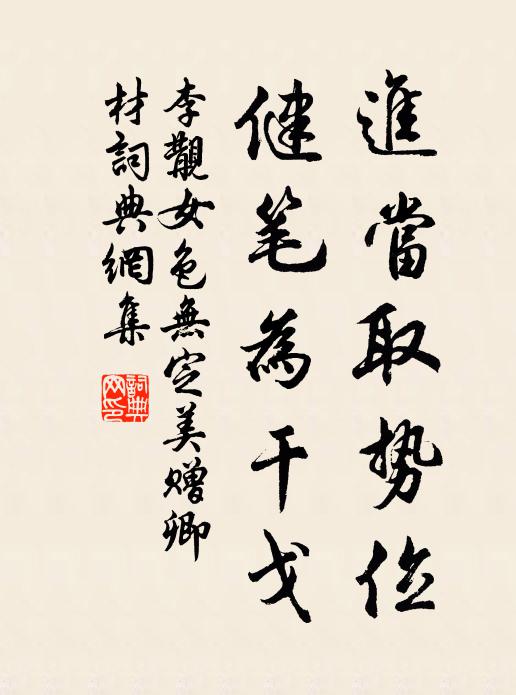 進當取勢位
健笔為干戈
李覯女色無定美贈卿
材詞典網集
詞典
网印